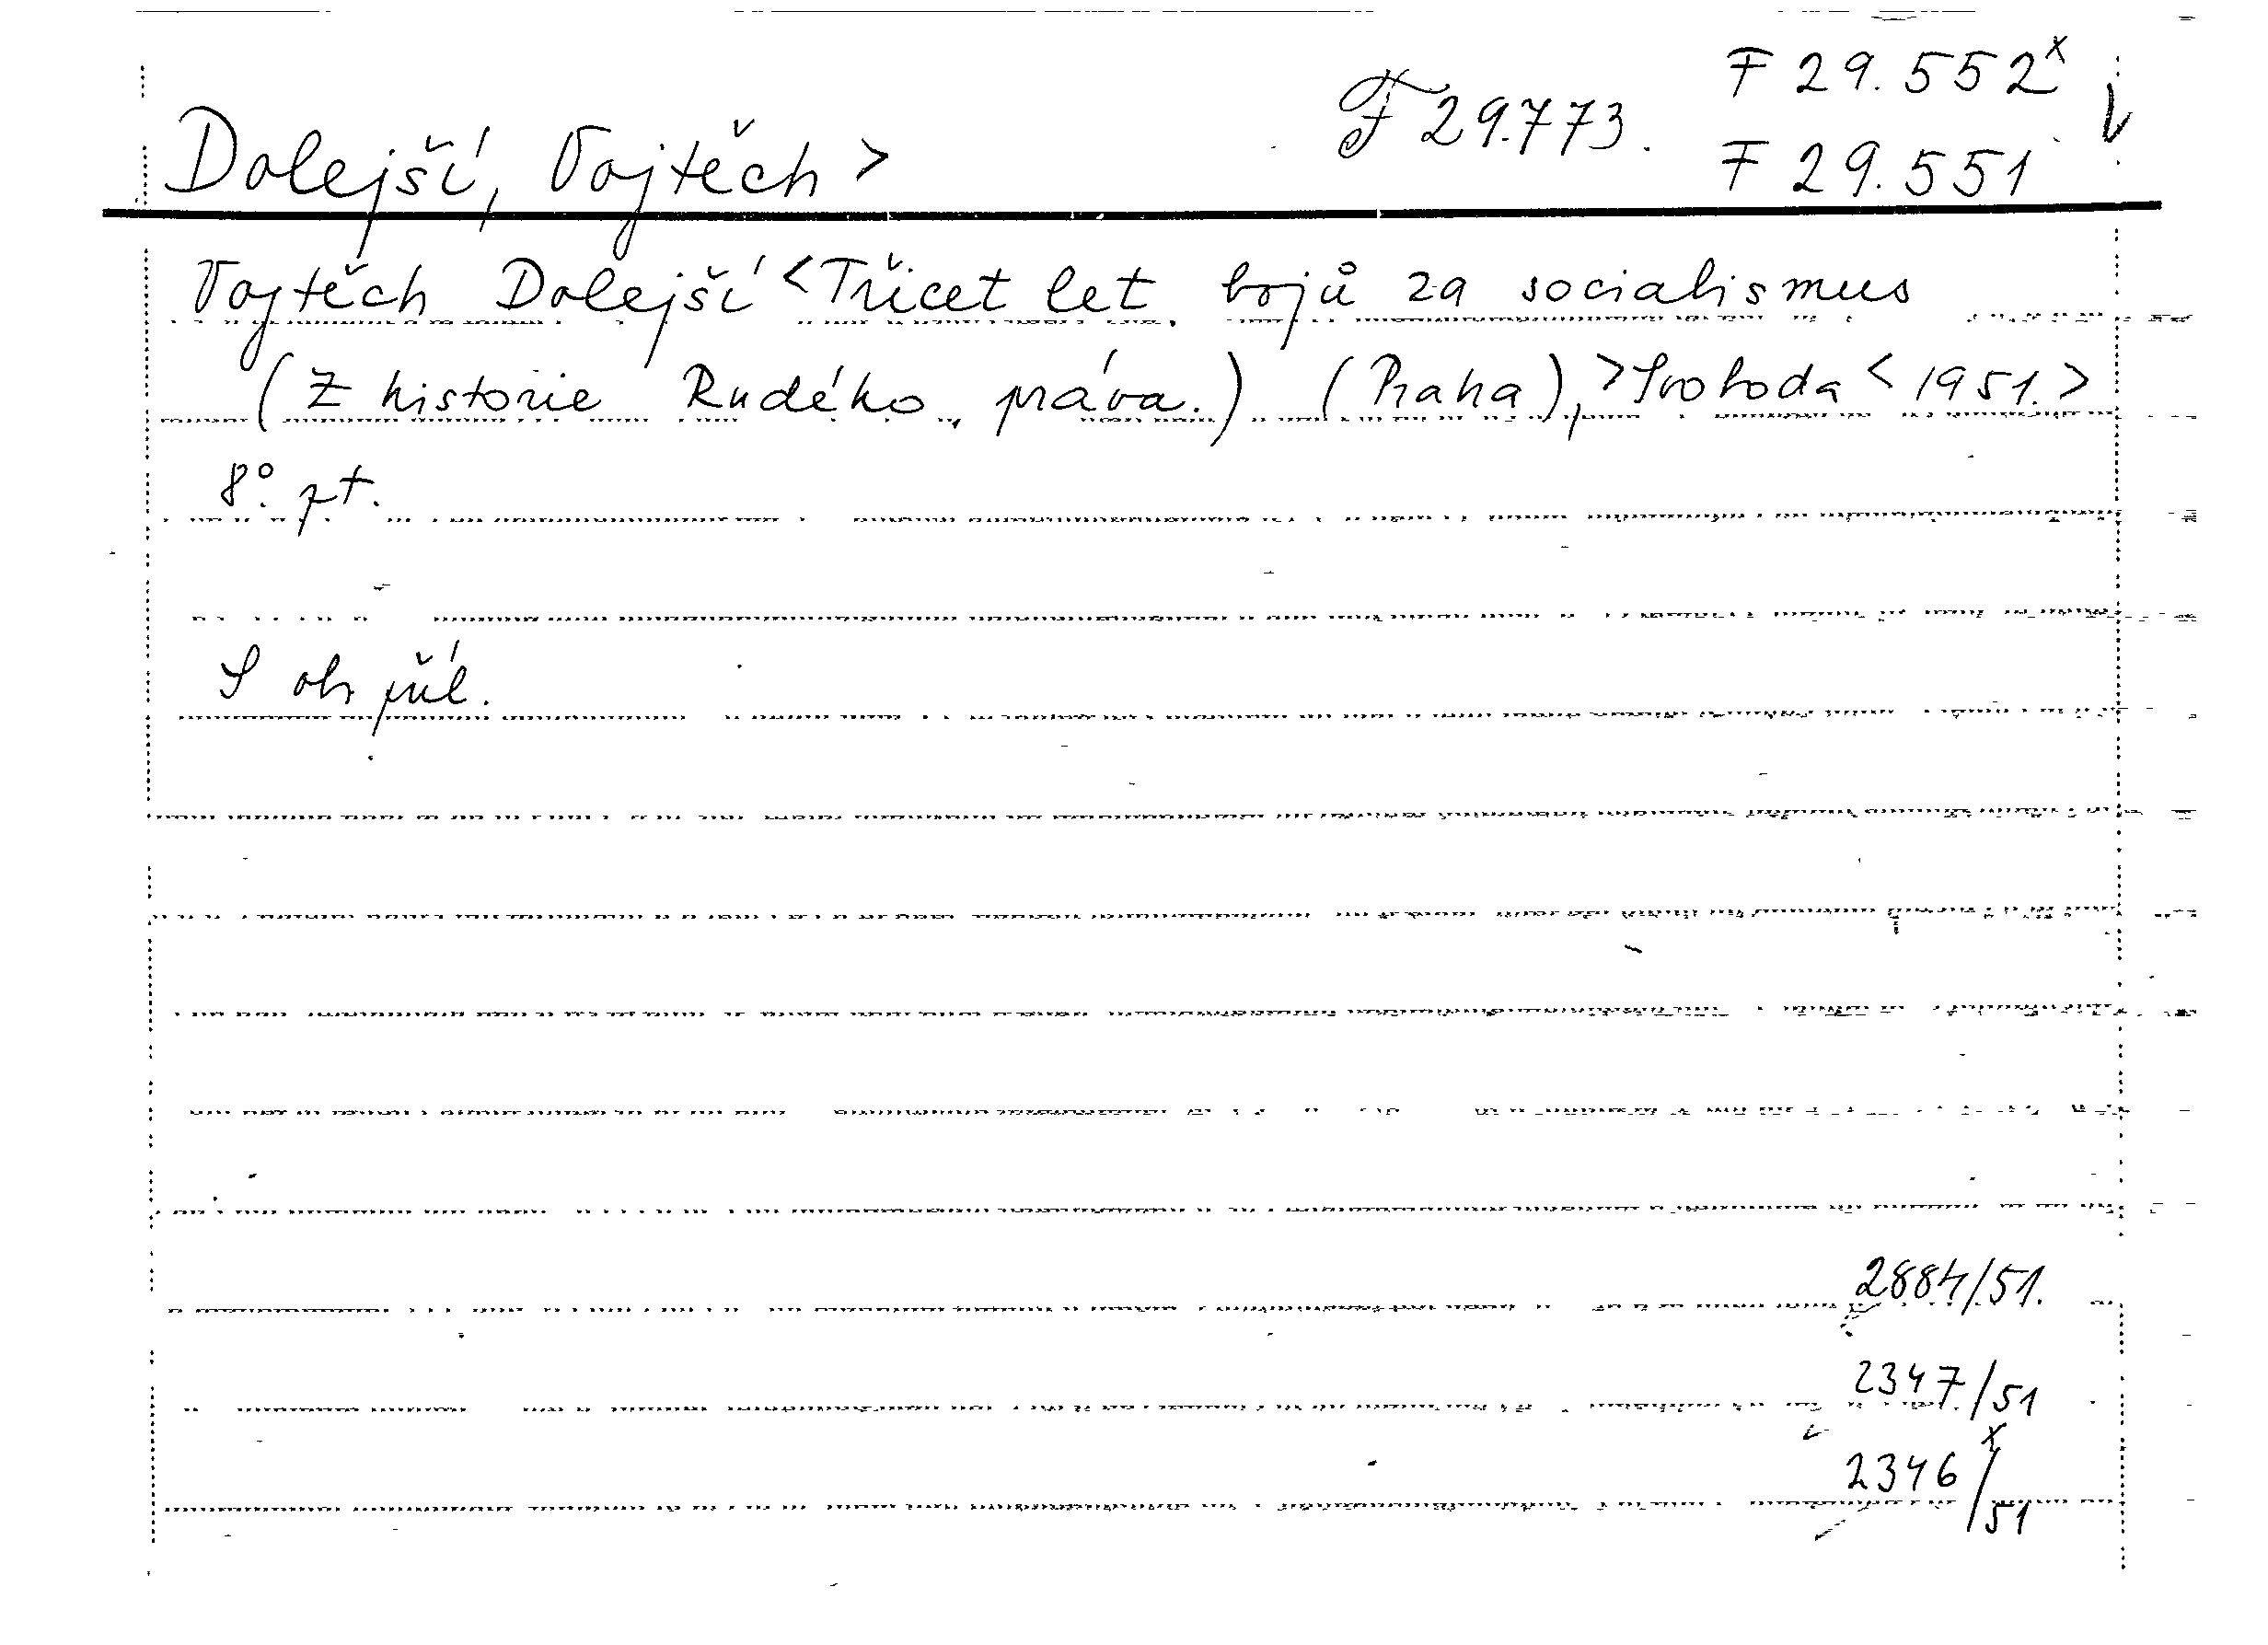 F 29.552x
F 29.773.
Dolejší, Vojtěch >
F 29.551
Vojtěch Dolejší < Třicet let bojů za socialismus
(Z historie Rudého práva.) (Praha), > Svoboda < 1951. >
8°. pt.
S obr příl.
2884/51.
2347/51
2346x/51